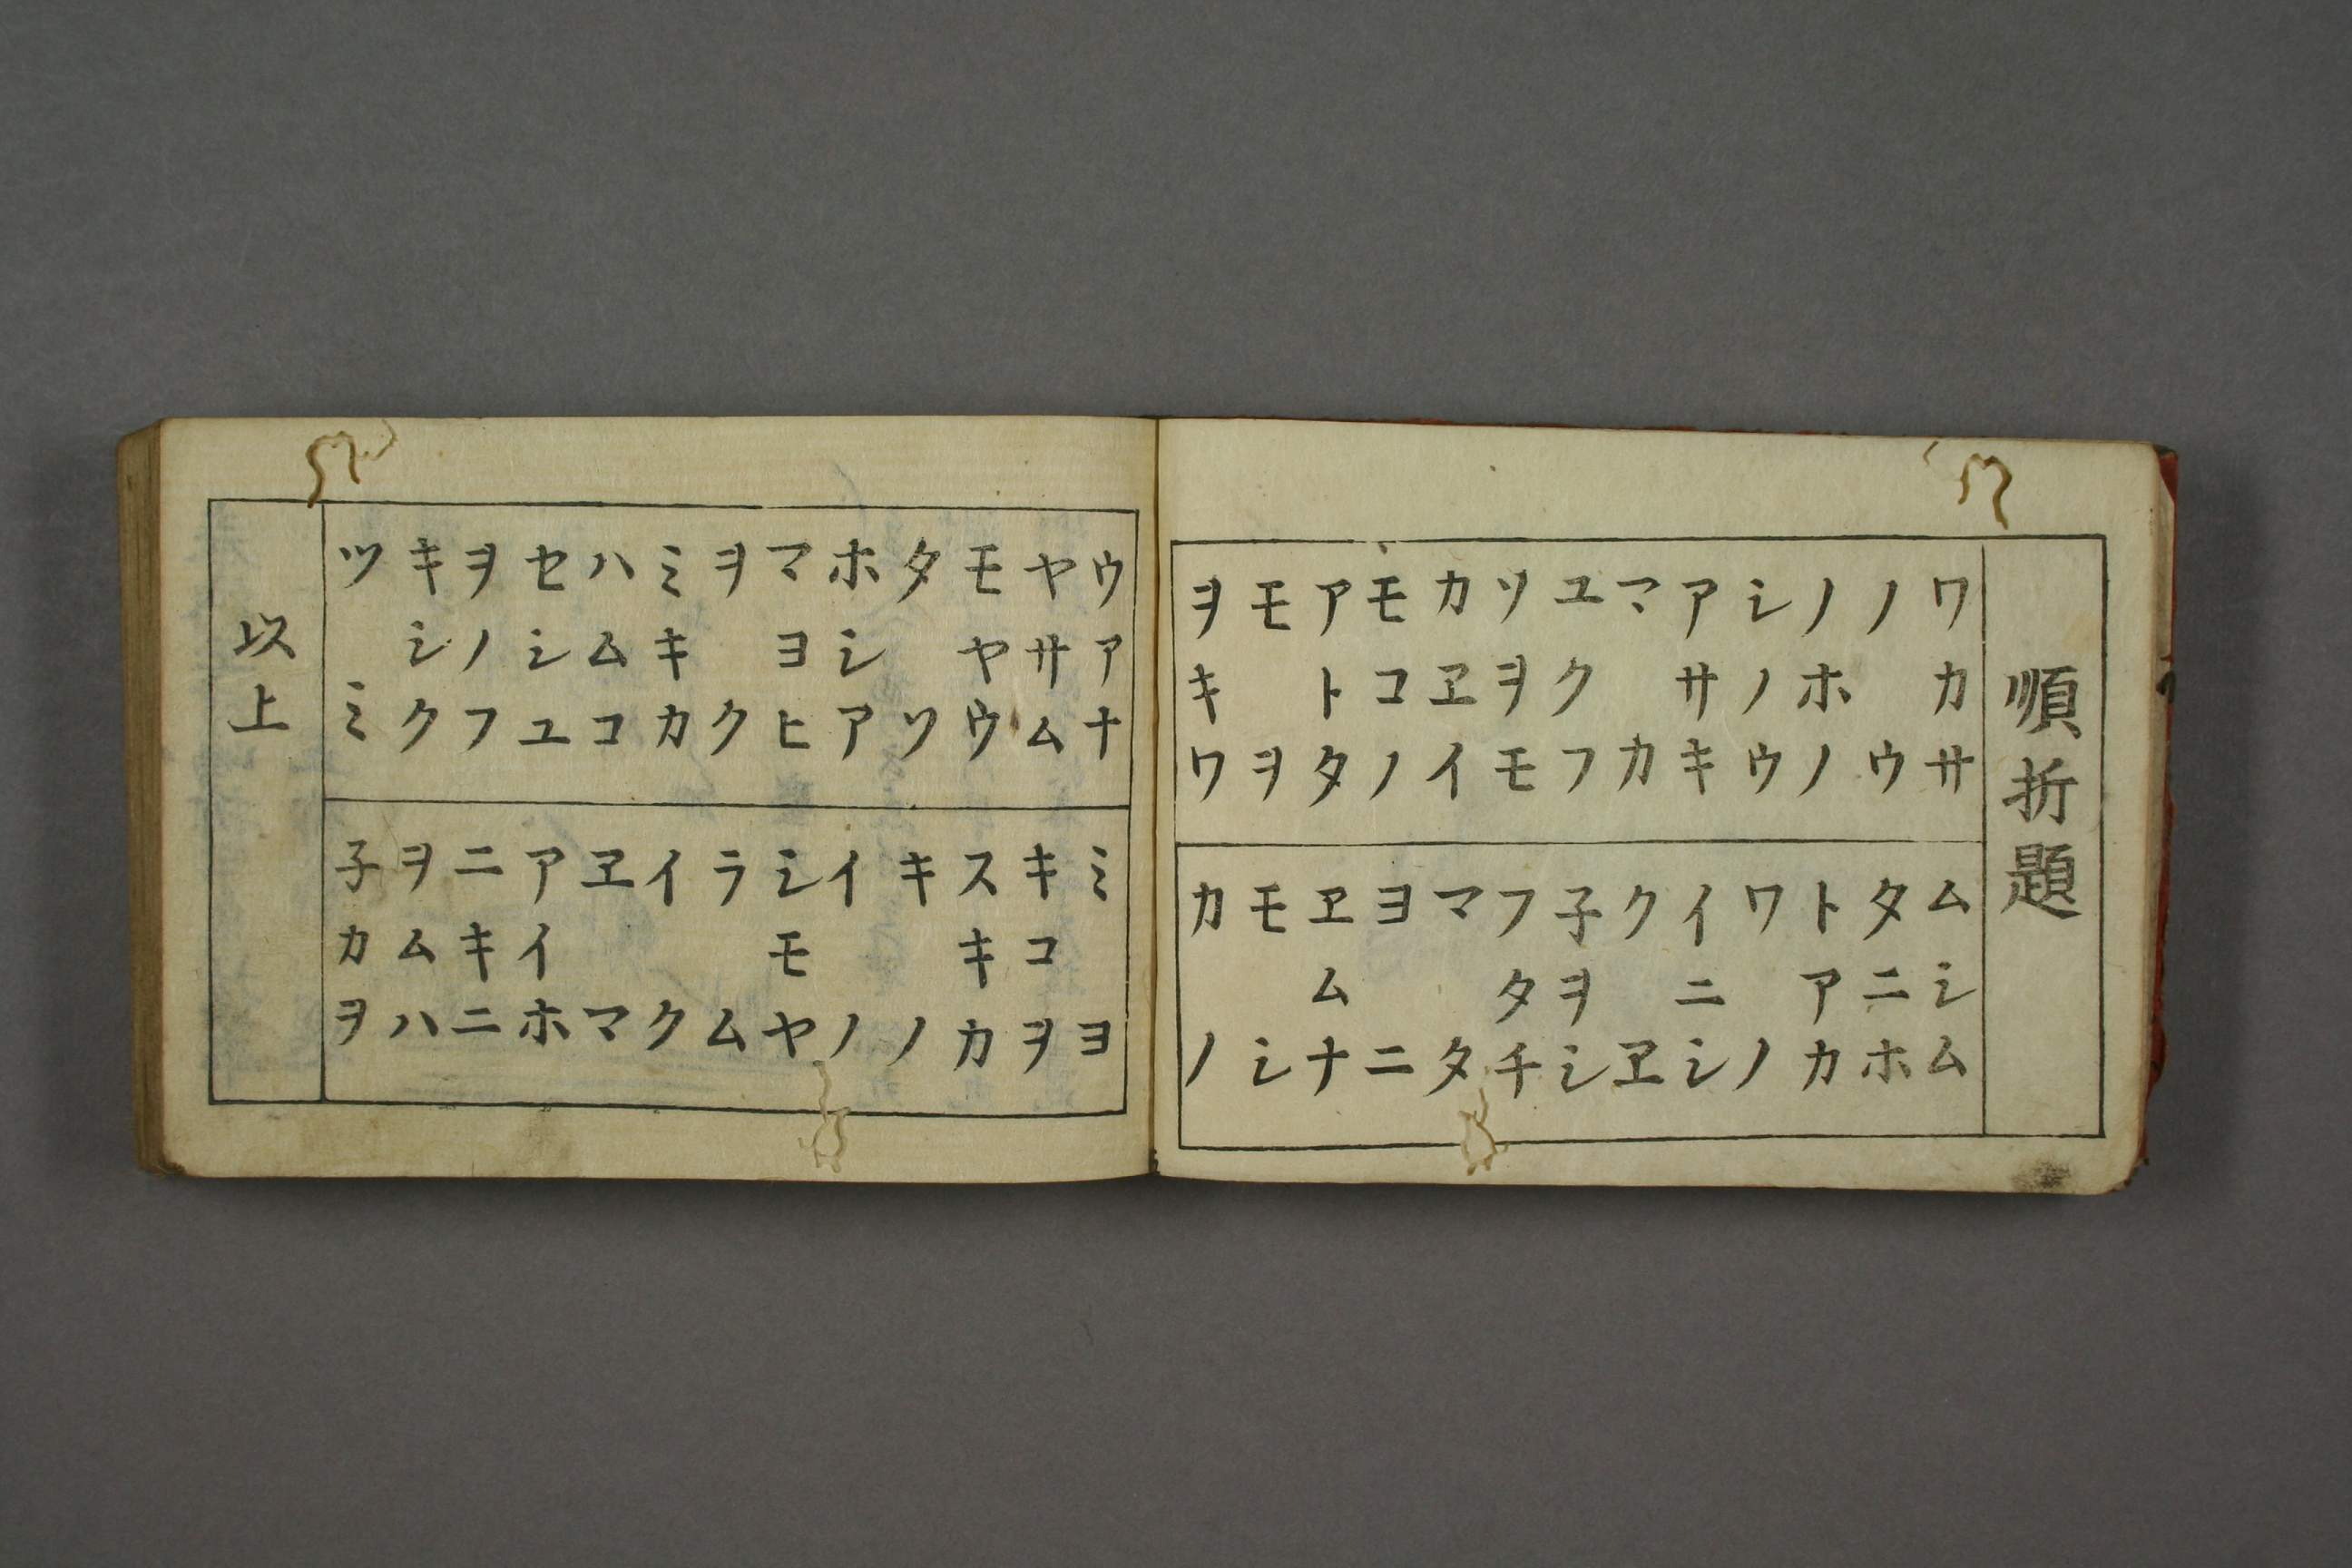 順折題
ワカサ
ノウ
ノホノ
シノウ
アサキ
マカ
ユクフ
ツヲモ
カヱイ
モコノ
アトタ
モヲ
ヲキワ
ムシム
タニホ
トアカ
ワノ
イニシ
クヱ
子ヲシ
フタチ
マタ
ヨニ
ヱムナ
モシ
カノ
ウアナ
ヤサム
モヤウ
タツ
ホシア
マヨヒ
ヲク
ミキカ
ハムコ
セシユ
ヲノフ
キシク
ツミ
ミヨ
キコヲ
スキカ
キノ
イノ
シモヤ
ラム
イク
ヱマ
アイホ
ニキニ
ヲムハ
子カヲ
以上